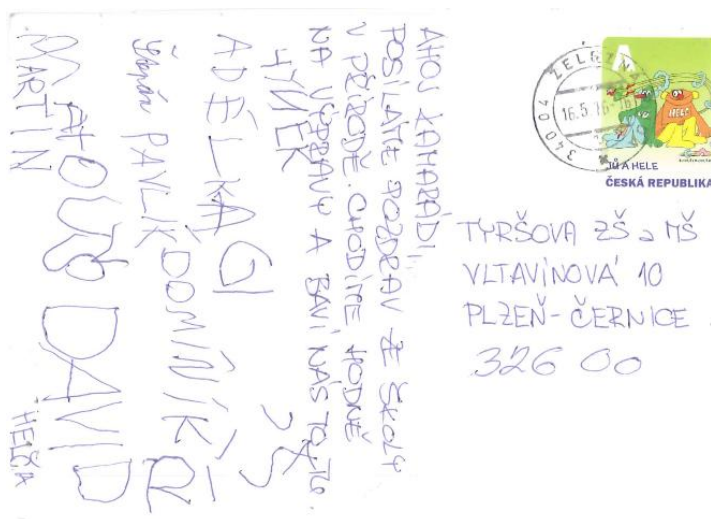 AHOJ KAMARÁDI!
POSÍLÁTE POZDRAV ZE ŠKOLY
V PŘÍRODĚ. CHODÍME HODNĚ
NA VÝPRAVY A BAVÍ NÁS TO TU.
HYNEK
ADÉLKA G
PAVLÍK DOMINIK Ř
MATOUŠ DAVID
MARTIN HELČA
340 04 ŽELEZNÁ
16.5.16
A
HELE
JŮ A HELE
ČESKÁ REPUBLIKA
TYRŠOVA ZŠ a MŠ
VLTAVÍNOVÁ 10
PLZEŇ - ČERNICE
326 00